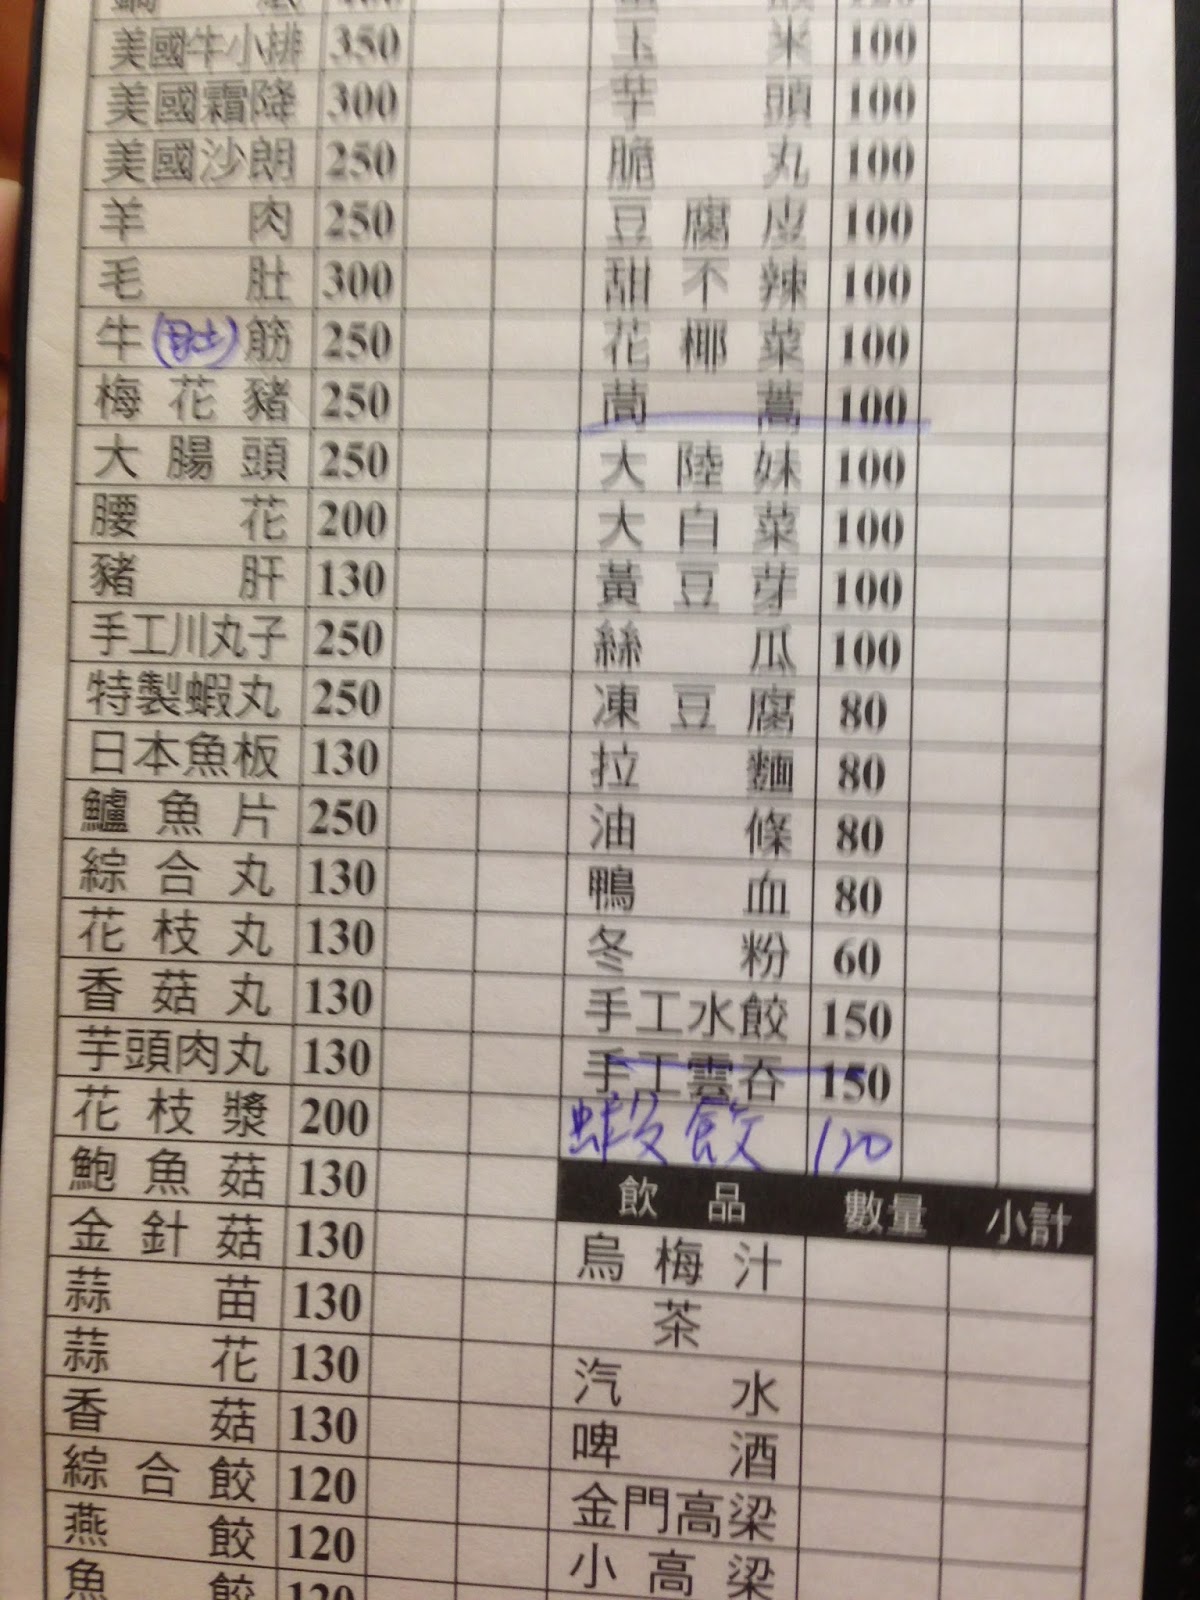 美國牛小排 350
美國霜降 300
美國沙朗 250
羊肉 250
毛肚 300
牛(肚)筋 250
梅花豬 250
大腸頭 250
腰花 200
豬肝 130
手工川丸子 250
特製蝦丸 250
日本魚板 130
鱸魚片 250
綜合丸 130
花枝丸 130
香菇丸 130
芋頭肉丸 130
花枝漿 200
鮑魚菇 130
金針菇 130
蒜苗 130
蒜花 130
香菇 130
綜合餃 120
燕餃 120
魚餃 120
玉米 100
芋頭 100
脆丸 100
豆腐皮 100
甜不辣 100
花椰菜 100
茼蒿 100
大陸妹 100
大白菜 100
黃豆芽 100
絲瓜 100
凍豆腐 80
拉麵 80
油條 80
鴨血 80
冬粉 60
手工水餃 150
手工雲吞 150
蝦餃 120
飲品 數量 小計
烏梅汁
茶
汽水
啤酒
金門高梁
小高梁